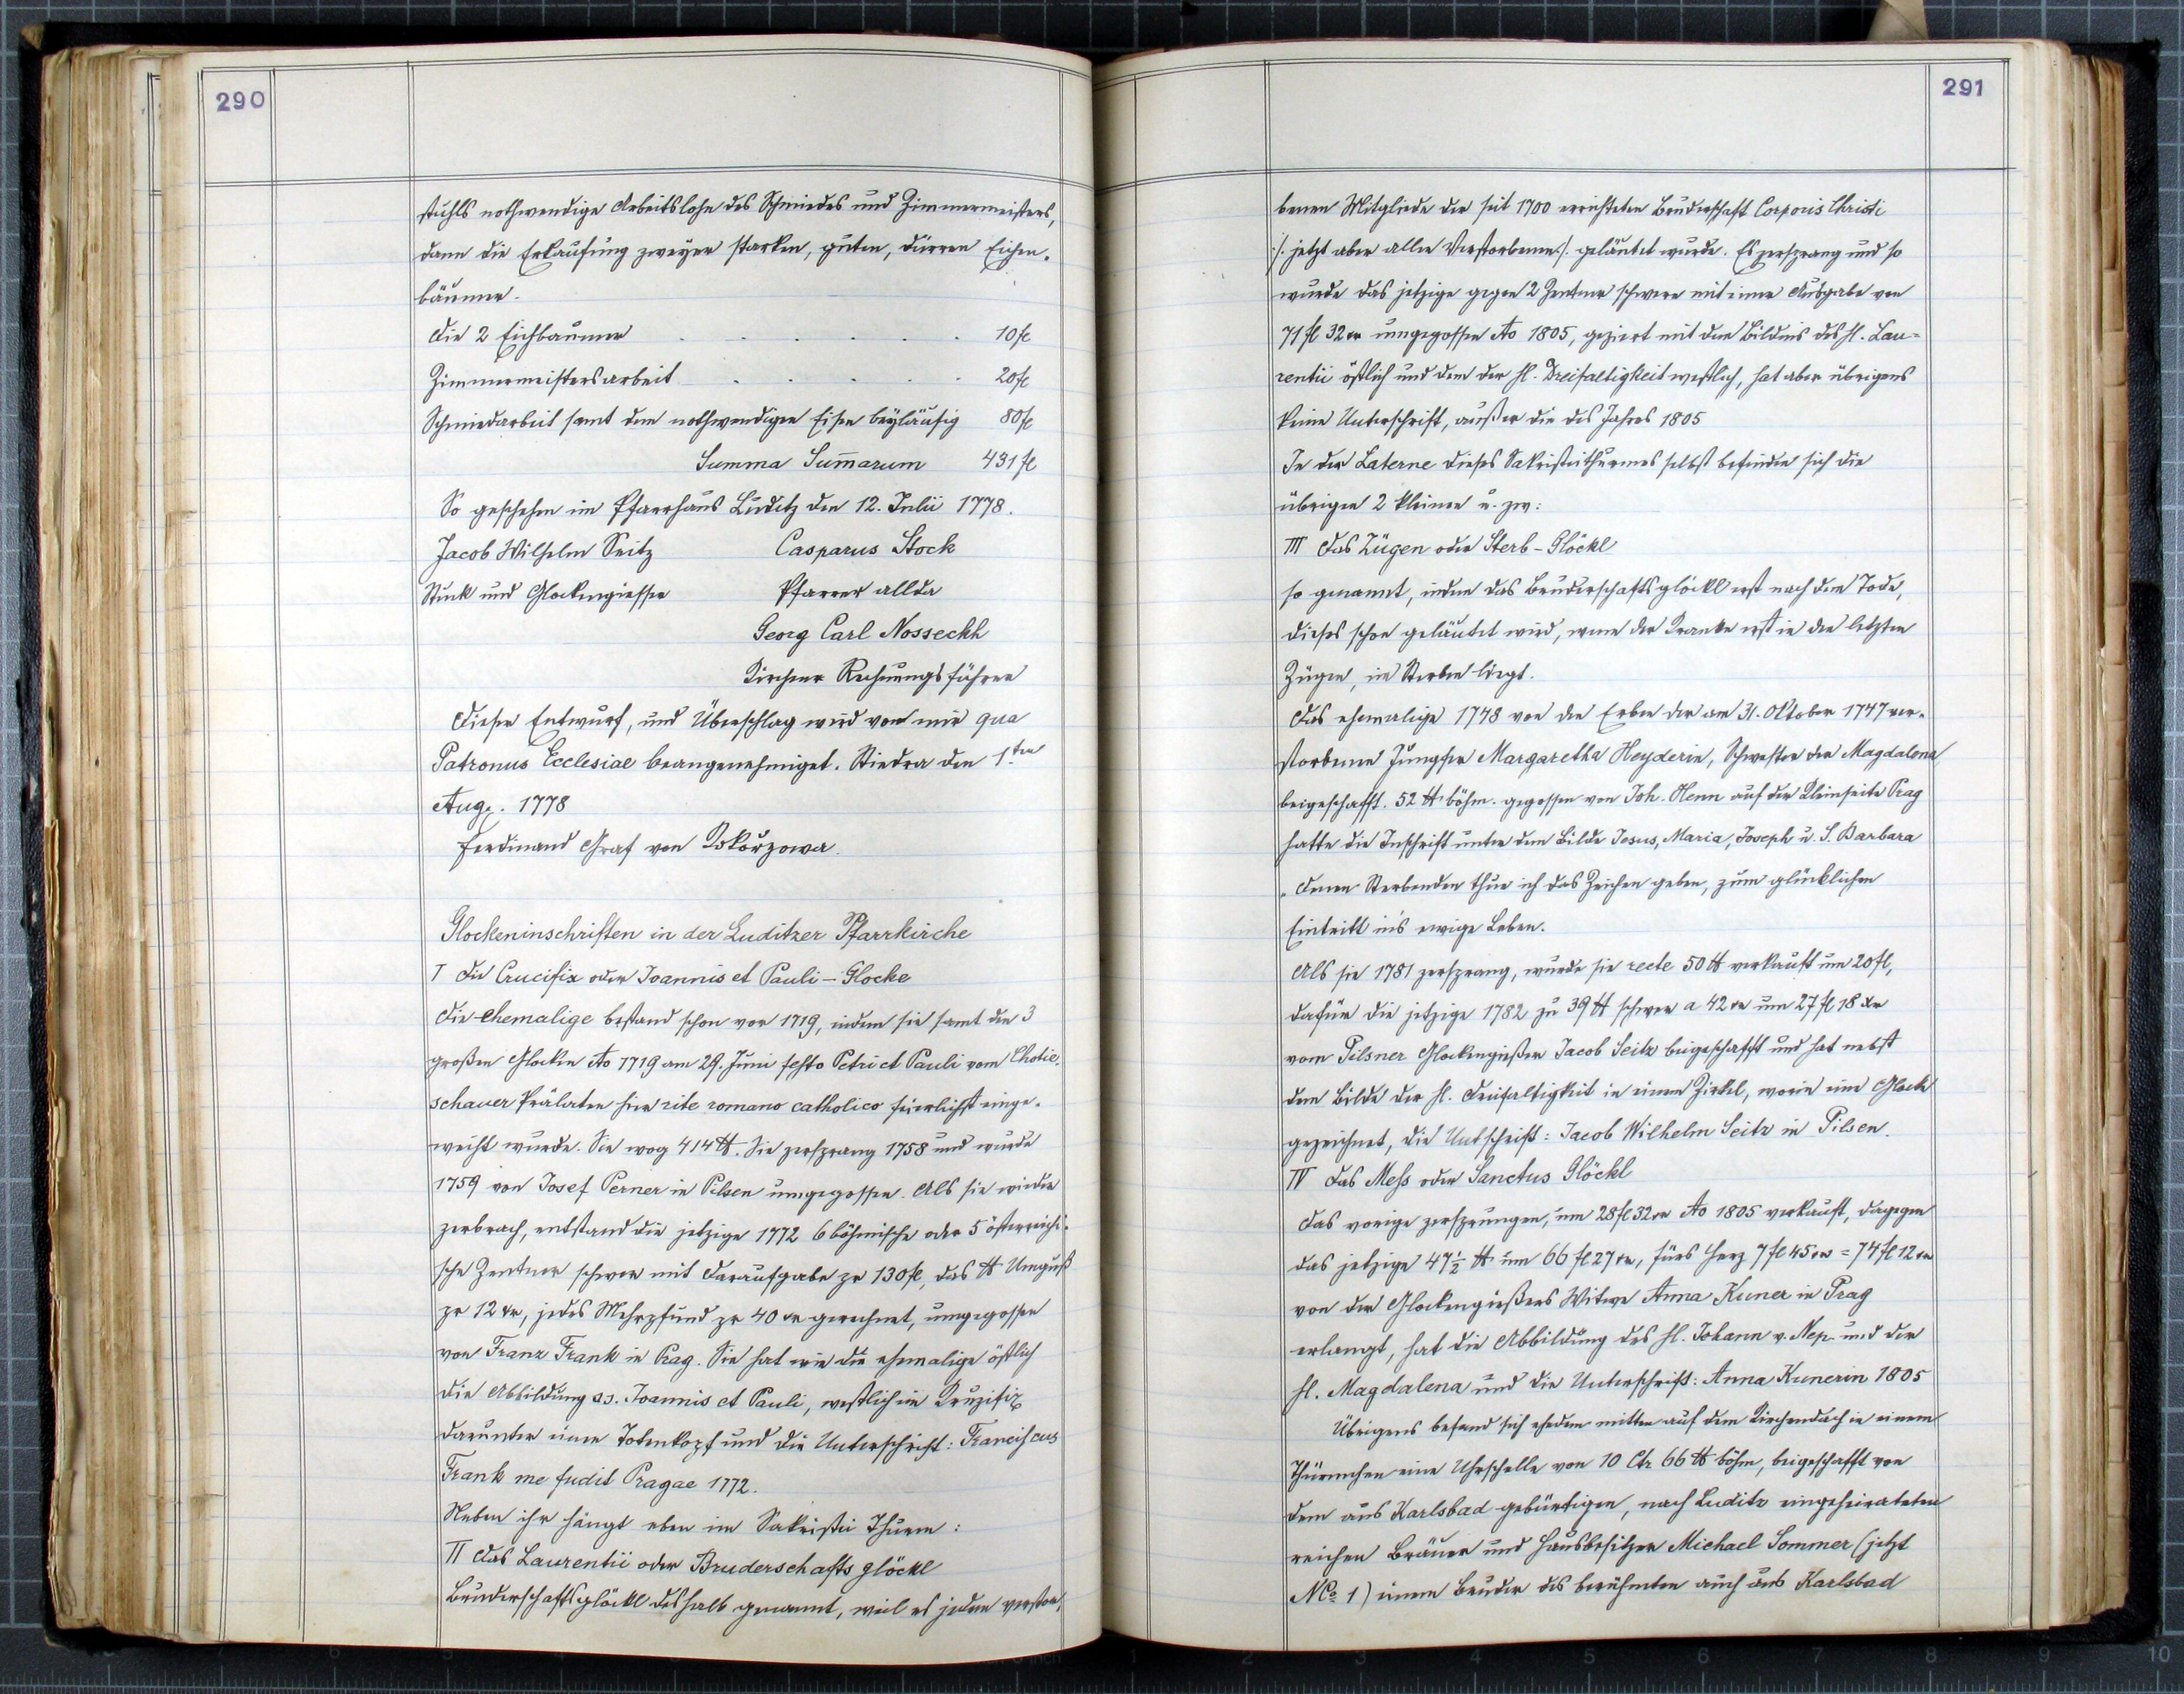 290
stuhls nothwendige Arbeitslohn des Schmiedes und Zimmermeisters,
dann die Erkaufung zweyer starken, guten, dürren Eichen-
bäumer.
Die 2 Eichbaumer . . . . . . 10 fl
Zimmermeistersarbeit . . . . . 20 fl
Schmiedarbeit samt dem nothwendigen Eisen beyläufig 80 fl
Summa Sum̄arum 431 fl
So geschehen im Pfarrhaus Luditz den 12. Julii 1778.
Jacob Wilhelm Seitz Casparus Stock
Stuck und Glockengiesser Pfarrer allda
Georg Carl Nosseckh
Kirchen Rechnungsführer
Dieser Entwurf, und Überschlag wird von mir qua
Patronus Ecclesiae beangenehmiget. Stiedra den 1ten
Aug. 1778
Ferdinand Graf von Kokorzowa.
Glockeninschriften in der Luditzer Pfarrkirche
I Die Crucifix oder Joannis et Pauli – Glocke
Die ehemalige bestand schon vor 1719, indem sie samt den 3
großen Glocken Ao 1719 am 29. Juni festo Petri et Pauli vom Chotie-
schauer Prälaten hier rite romano catholico feierlichst einge-
weiht wurde. Sie wog 414 ℔. Sie zersprang 1758 und wurde
1759 von Josef Perner in Pilsen umgegossen. Als sie wieder
zerbrach, entstand die jetzige 1772 6 böhmische oder 5 österreichi-
sche Zentner schwer mit Daraufgabe zr 130 fl, das ℔ Umguß
zr 12 xr, jedes Mehrpfund zr 40 xr gerechnet, umgegossen
von Franz Frank in Prag. Sie hat wie die ehemalige östlich
die Abbildung ss. Joannis et Pauli, westlich ein Kruzifix
darunter einen Totenkopf und die Unterschrift: Franciscus
Frank me fudit Pragae 1772.
Neben ihr hängt eben im Sakristei Thurm:
II Das Laurentii oder Bruderschafts glöckl
Bruderschaftsglöckl deshalb genannt, weil es jedem verstor-
291
benen Mitgliede der seit 1700 errichteten Bruderschaft Corporis Christi
/: jetzt aber allen Verstorbenen :/ geläutet wurde. Es zersprang und so
wurde das jetzige gegen 2 Zentner schwere mit einer Ausgabe von
71 fl 32 xr umgegossen Ao 1805, geziert mit dem Bildnis des hl. Lau=
rentii östlich und dem der hl. Dreifaltigkeit westlich, hat aber übrigens
keine Unterschrift, außer die des Jahres 1805
In der Laterne dieses Sakristeithurmes selbst befinden sich die
übrigen 2 kleinen u. zw:
III Das Zügen oder Sterb – Glöckl
so genannt, indem das Bruderschaftsglöckl erst nach dem Tode,
dieses schon geläutet wird, wenn der Kranke erst in den letzten
Zügen, im Sterben liegt.
Das ehemalige 1748 von den Erben der am 31. Oktober 1747 ver-
storbenen Jungfer Margaretha Heyderin, Schwester der Magdalena
beigeschafft. 52 ℔ böhm. gegossen von Joh. Henn auf der Kleinseite Prag
hatte die Inschrift unter dem Bilde Jesus, Maria, Joseph u. S. Barbara
„Denen Sterbenden thue ich das Zeichen geben, zum glücklichen
Eintritt ins ewige Leben.
Als sie 1781 zersprang, wurde sie recte 50 ℔ verkauft um 20 fl,
dafür die jetzige 1782 zu 39 ℔ schwer a 42 xr um 27 fl 18 xr
vom Pilsner Glockengießer Jacob Seitz beigeschafft und hat nebst
dem Bilde der hl. Dreifaltigkeit in einem Zirkel, worin eine Glocke
gezeichnet, die Umschrift: Jacob Wilhelm Seitz in Pilsen.
IV Das Mess oder Sanctus Glöckl
Das vorige zersprungen, um 28 fl 32 xr Ao 1805 verkauft, dagegen
das jetzige 47½ ℔ um 66 fl 27 xr, fürs Herz 7 fl 45 xr = 74 fl 12 xr
von der Glockengießers Witwe Anna Kuner in Prag
erlangt, hat die Abbildung des hl. Johann v. Nep. und der
hl. Magdalena und die Unterschrift: Anna Kunerin 1805
Übrigens befand sich ehedem mitten auf dem Kirchendach in einem
Thürmchen eine Uhrschelle von 10 Ctr 66 ℔ böhm, beigeschafft von
dem aus Karlsbad gebürtigen, nach Luditz eingeheirateten
reichen Bräuer und Hausbesitzer Michael Sommer (jetzt
No 1) einem Bruder des berühmten auch aus Karlsbad